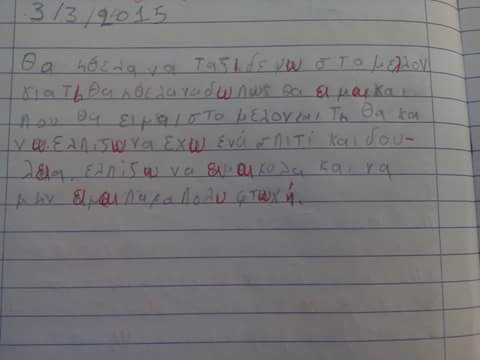 3/3/2015
Θα ηθελα να ταξιδενω στο μελλον
γιατη θα ηθελα να δω πως θα ειμαι και
που θα ειμαι στο μελον και τη θα κα
νω. ελπιζω να εχω ενα σπιτι και δου-
λεια, ελπιζω να ειμαι κολα και να
μην ειμαι παρα πολυ φτωχή.